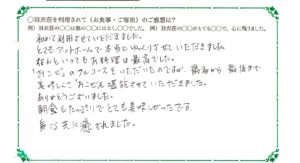 ○羽衣荘を利用されて（お食事・ご宿泊）のご感想は？
例）羽衣荘の○○は他の○○にはなく、○○でした。　例）羽衣荘の○○がとても○○で、心に残りました。
初めて利用させていただきました。
とてもアットホームで本当にゆっくりさせていただきました
なんといってもお料理は最高でした。
“アワビ”のフルコースをいただいたのですが、最初から最後まで
美味しく“おこぜ”を堪能させていただきました。
ありがとうございました。
朝食もたっぷりでとても美味しかったです。
身心共に癒されました。